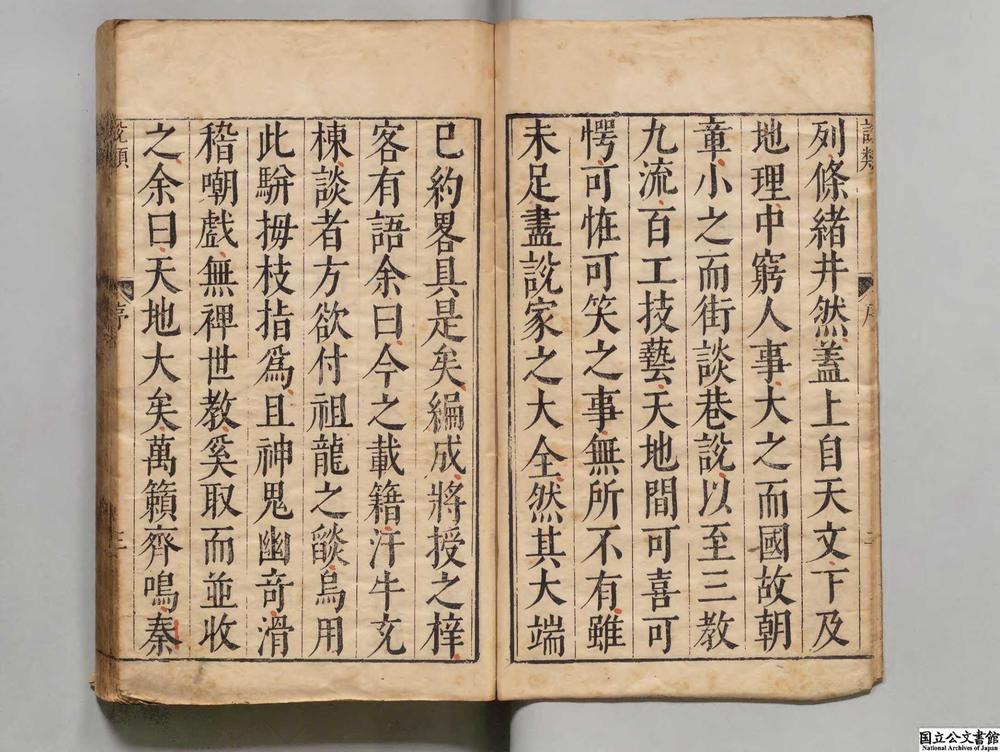 列條緒井然蓋上自天文下及
地理中窮人事大之而國故朝
章小之而街談巷說以至三教
九流百工技藝天地間可喜可
愕可恠可笑之事無所不有雖
未足盡說家之大全然其大端
已約畧具是矣編成將授之梓
客有語余曰今之載籍汗牛充
棟談者方欲付祖龍之燄烏用
此駢拇枝指為且神鬼幽奇滑
稽嘲戲無裨世教奚取而並收
之余曰天地大矣萬籟齊鳴秦
說類
序
三
国立公文書館
National Archives of Japan